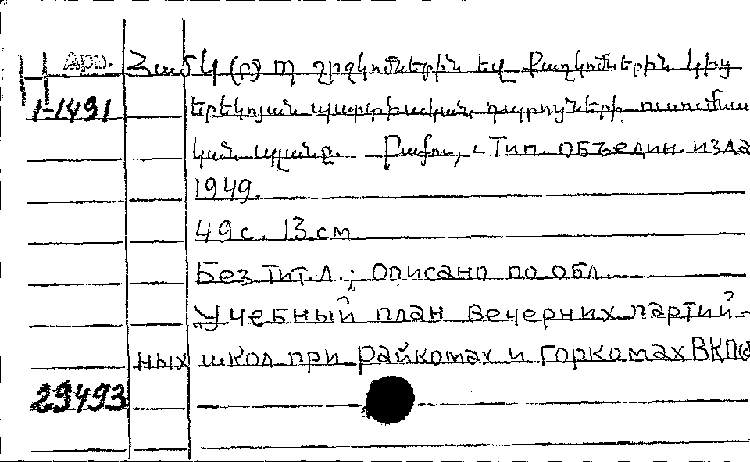 Арм. ՀամԿ(բ)Պ շրջկոմներին եվ քաղկոմներին կից
1-1491 երեկոյան պարտիական դպրոցների ուսումնա
կան պլանը. Բաքու, Тип. объедин. изда
1949.
49 с. 13 см
Без тит. л.; описано по обл.
Учебный план вечерних партий-
ных школ при райкомах и горкомах ВКП(б
29493